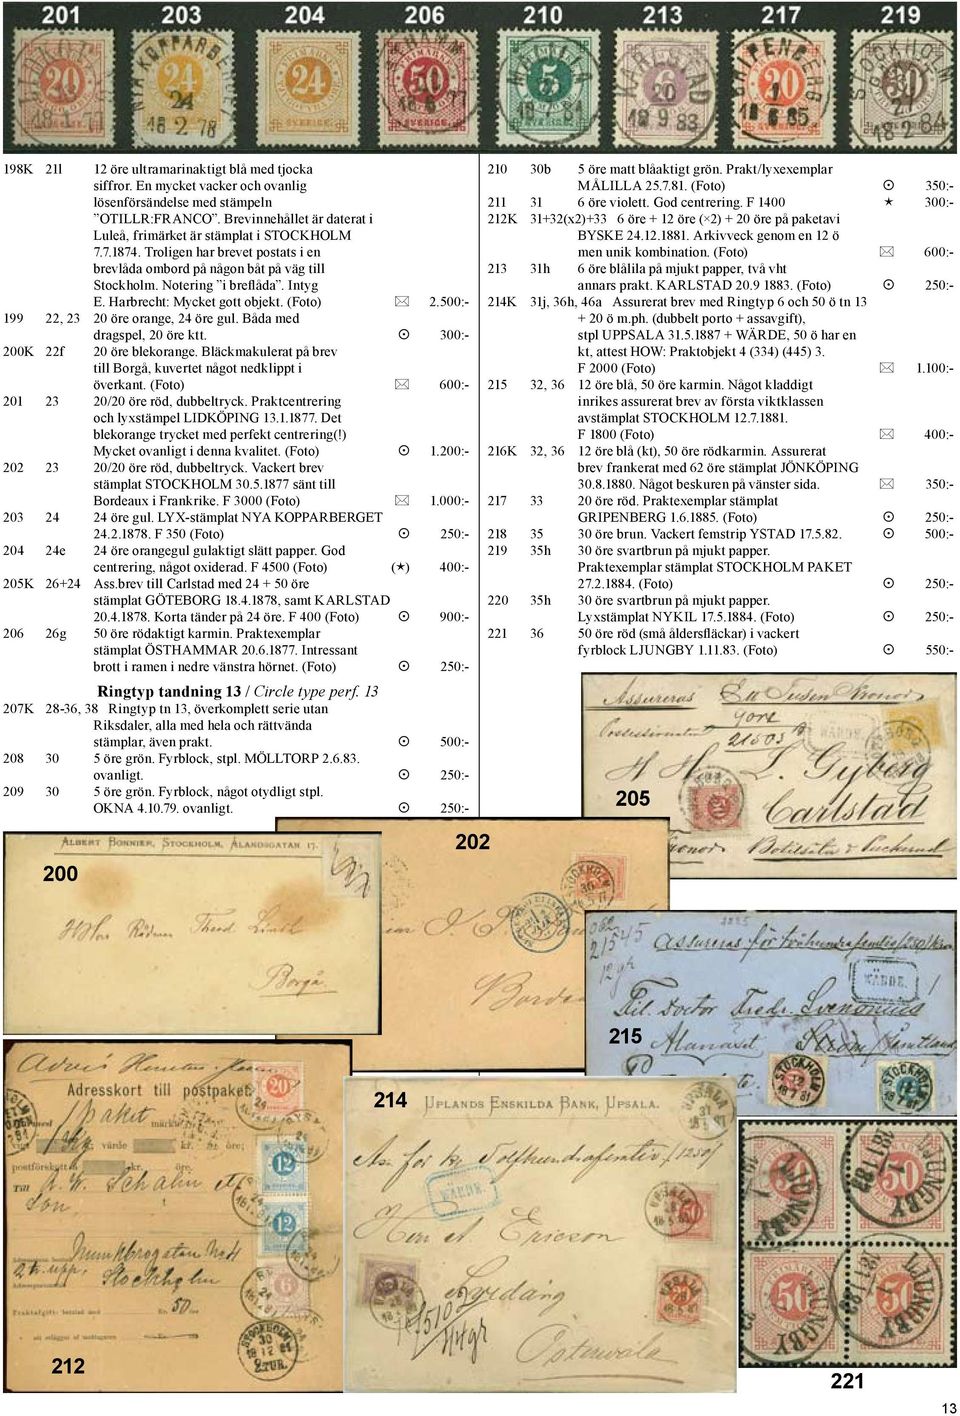 201 203 204 206 210 213 217 219
198K 21l 12 öre ultramarinaktigt blå med tjocka
siffror. En mycket vacker och ovanlig
lösenförsändelse med stämpeln
”OTILLR:FRANCO”. Brevinnehållet är daterat i
Luleå, frimärket är stämplat i STOCKHOLM
7.7.1874. Troligen har brevet postats i en
brevlåda ombord på någon båt på väg till
Stockholm. Notering ”i breflåda”. Intyg
E. Harbrecht: Mycket gott objekt. (Foto) ✉ 2.500:-
199 22, 23 20 öre orange, 24 öre gul. Båda med
dragspel, 20 öre ktt. ☉ 300:-
200K 22f 20 öre blekorange. Bläckmakulerat på brev
till Borgå, kuvertet något nedklippt i
överkant. (Foto) ✉ 600:-
201 23 20/20 öre röd, dubbeltryck. Praktcentrering
och lyxstämpel LIDKÖPING 13.1.1877. Det
blekorange trycket med perfekt centrering(!)
Mycket ovanligt i denna kvalitet. (Foto) ☉ 1.200:-
202 23 20/20 öre röd, dubbeltryck. Vackert brev
stämplat STOCKHOLM 30.5.1877 sänt till
Bordeaux i Frankrike. F 3000 (Foto) ✉ 1.000:-
203 24 24 öre gul. LYX-stämplat NYA KOPPARBERGET
24.2.1878. F 350 (Foto) ☉ 250:-
204 24e 24 öre orangegul gulaktigt slätt papper. God
centrering, något oxiderad. F 4500 (Foto) (★) 400:-
205K 26+24 Ass.brev till Carlstad med 24 + 50 öre
stämplat GÖTEBORG 18.4.1878, samt KARLSTAD
20.4.1878. Korta tänder på 24 öre. F 400 (Foto) ☉ 900:-
206 26g 50 öre rödaktigt karmin. Praktexemplar
stämplat ÖSTHAMMAR 20.6.1877. Intressant
brott i ramen i nedre vänstra hörnet. (Foto) ☉ 250:-
Ringtyp tandning 13 / Circle type perf. 13
207K 28-36, 38 Ringtyp tn 13, överkomplett serie utan
Riksdaler, alla med hela och rättvända
stämplar, även prakt. ☉ 500:-
208 30 5 öre grön. Fyrblock, stpl. MÖLLTORP 2.6.83.
ovanligt. ☉ 250:-
209 30 5 öre grön. Fyrblock, något otydligt stpl.
OKNA 4.10.79. ovanligt. ☉ 250:-
210 30b 5 öre matt blåaktigt grön. Prakt/lyxexemplar
MÅLILLA 25.7.81. (Foto) ☉ 350:-
211 31 6 öre violett. God centrering. F 1400 ★ 300:-
212K 31+32(x2)+33 6 öre + 12 öre (×2) + 20 öre på paketavi
BYSKE 24.12.1881. Arkivveck genom en 12 ö
men unik kombination. (Foto) ✉ 600:-
213 31h 6 öre blålila på mjukt papper, två vht
annars prakt. KARLSTAD 20.9 1883. (Foto) ☉ 250:-
214K 31j, 36h, 46a Assurerat brev med Ringtyp 6 och 50 ö tn 13
+ 20 ö m.ph. (dubbelt porto + assavgift),
stpl UPPSALA 31.5.1887 + WÄRDE, 50 ö har en
kt, attest HOW: Praktobjekt 4 (334) (445) 3.
F 2000 (Foto) ✉ 1.100:-
215 32, 36 12 öre blå, 50 öre karmin. Något kladdigt
inrikes assurerat brev av första viktklassen
avstämplat STOCKHOLM 12.7.1881.
F 1800 (Foto) ✉ 400:-
216K 32, 36 12 öre blå (kt), 50 öre rödkarmin. Assurerat
brev frankerat med 62 öre stämplat JÖNKÖPING
30.8.1880. Något beskuren på vänster sida. ✉ 350:-
217 33 20 öre röd. Praktexemplar stämplat
GRIPENBERG 1.6.1885. (Foto) ☉ 250:-
218 35 30 öre brun. Vackert femstrip YSTAD 17.5.82. ☉ 500:-
219 35h 30 öre svartbrun på mjukt papper.
Praktexemplar stämplat STOCKHOLM PAKET
27.2.1884. (Foto) ☉ 250:-
220 35h 30 öre svartbrun på mjukt papper.
Lyxstämplat NYKIL 17.5.1884. (Foto) ☉ 250:-
221 36 50 öre röd (små åldersfläckar) i vackert
fyrblock LJUNGBY 1.11.83. (Foto) ☉ 550:-
205
Assureras Ett Tusen Kronor
21503
WÄRDE.
Gyberg
Carlstad
202
STOCKHOLM
200
ALBERT BONNIER, STOCKHOLM, ÅLANDSGATAN 17.
Theod.
Borgå
215
Assureras för
WÄRDE.
Doctor Fredr.
STOCKHOLM
212
Adresskort till postpaket.
1 paket
värde kr. öre;
postförskott kr. öre.
Till
Munkbrogatan
Stockholm
STOCKHOLM
214
UPLANDS ENSKILDA BANK, UPSALA.
WÄRDE.
Ericson
UPSALA
221
LJUNGBY
13